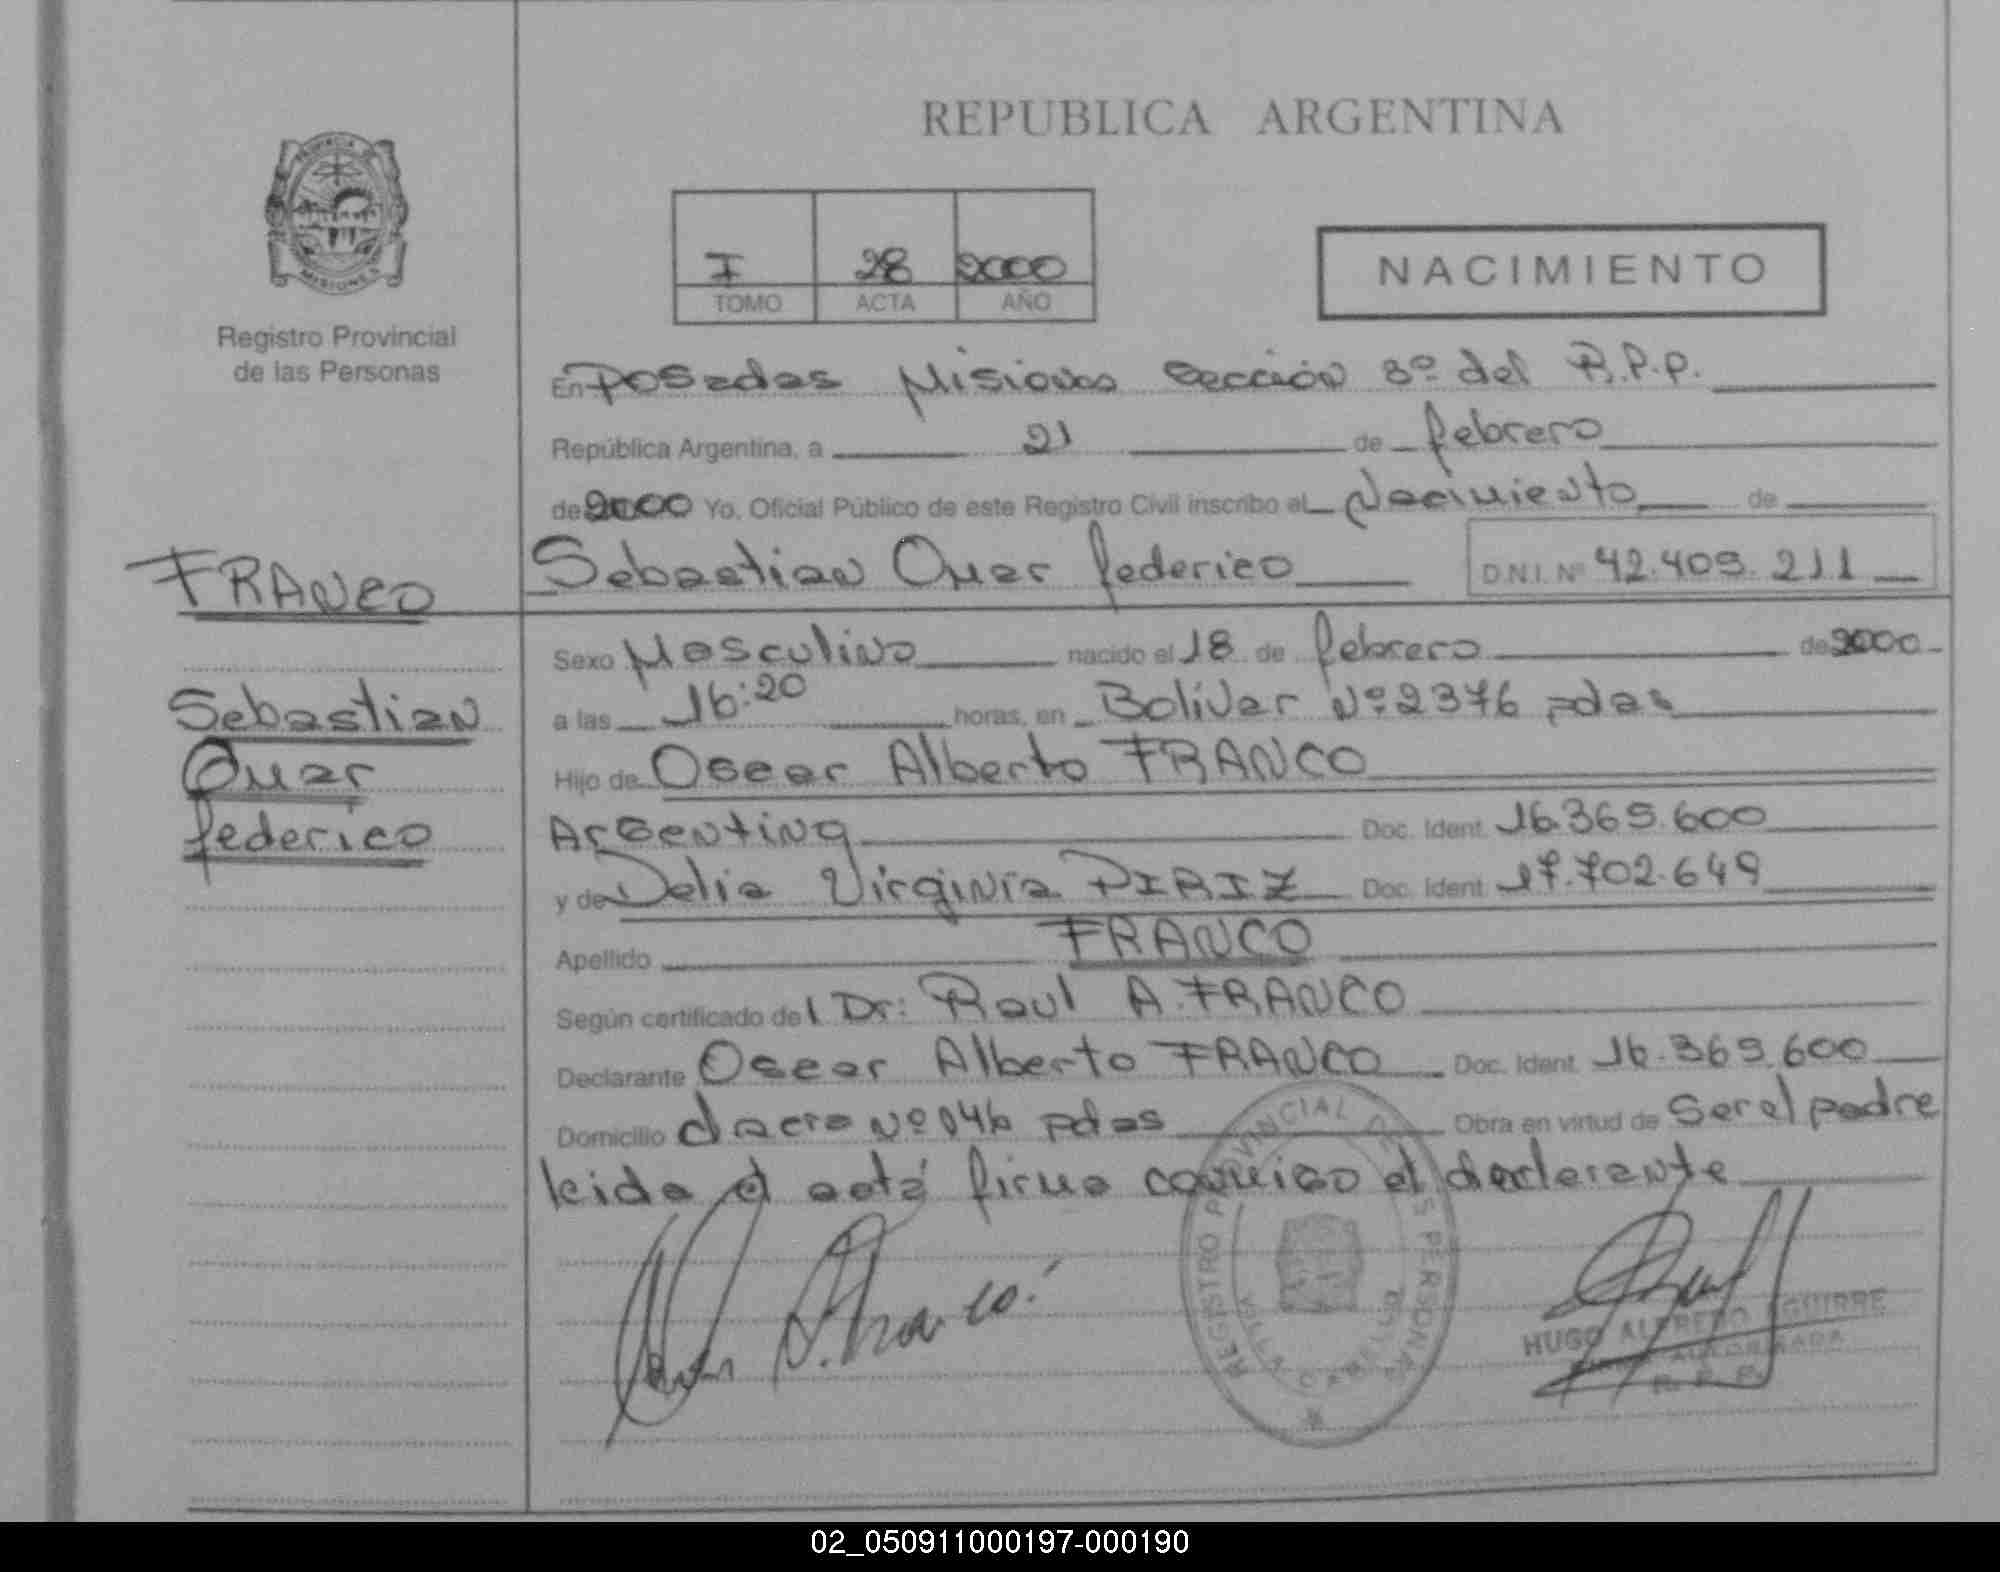 REPUBLICA ARGENTINA
PROVINCIA DE
MISIONES
Registro Provincial
de las Personas
I 28 2000
TOMO ACTA AÑO
NACIMIENTO
En Posadas Misiones Sección 3º del R.P.P.
República Argentina, a 21 de febrero
de 2000 Yo, Oficial Público de este Registro Civil inscribo el Nacimiento de
Sebastian Omar federico D.N.I. Nº 42.409.211
FRANCO
Sebastian
Omar
federico
Sexo Masculino nacido el 18 de febrero de 2000
a las 16:20 horas, en Bolívar Nº 2376 pdas
Hijo de Oscar Alberto FRANCO
Argentina Doc. Ident. 16.369.600
y de Delia Virginia PIRIZ Doc. Ident. 17.702.649
Apellido FRANCO
Según certificado del Dr: Raul A. FRANCO
Declarante Oscar Alberto FRANCO Doc. Ident. 16.369.600
Domicilio Nº pdas Obra en virtud de Ser el padre
leida el acta firma conmigo el declarante
REGISTRO PROVINCIAL DE LAS PERSONAS
VILLA CABELLO
HUGO ALFREDO AGUIRRE
R. P. P.
02_050911000197-000190